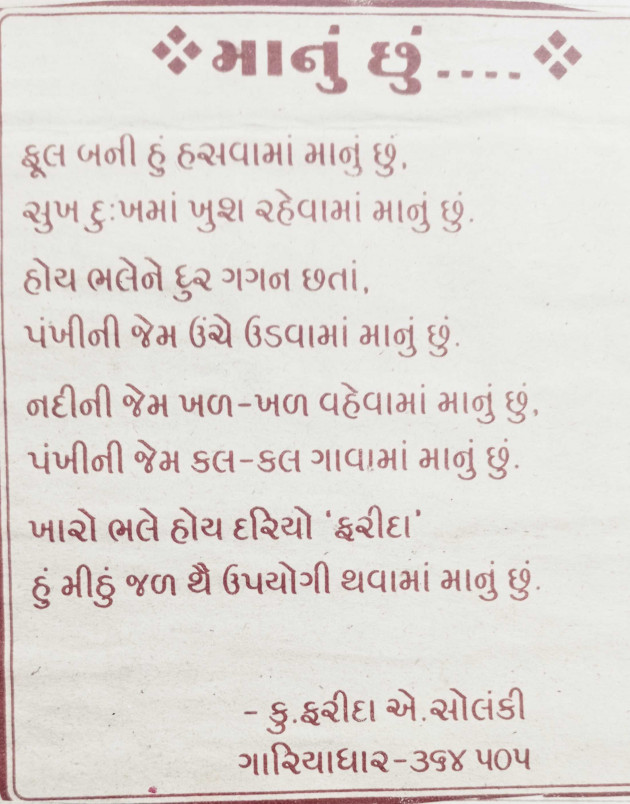 માનું છું....
ફૂલ બની હું હસવામાં માનું છું,
સુખ દુઃખમાં ખુશ રહેવામાં માનું છું.
હોય ભલેને દુર ગગન છતાં,
પંખીની જેમ ઉંચે ઉડવામાં માનું છું.
નદીની જેમ ખળ-ખળ વહેવામાં માનું છું,
પંખીની જેમ કલ-કલ ગાવામાં માનું છું.
ખારો ભલે હોય દરિયો 'ફરીદા'
હું મીઠું જળ થૈ ઉપયોગી થવામાં માનું છું.
- કુ.ફરીદા એ.સોલંકી
ગારિયાધાર-૩૬૪ ૫૦૫